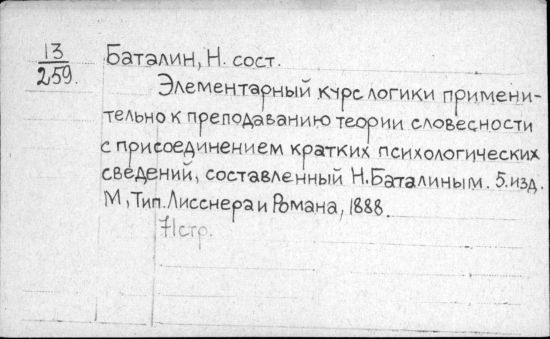 13
259.
Баталин, Н. сост.
Элементарный курс логики примени-
тельно к преподаванию теории словесности
с присоединением кратких психологических
сведений, составленный Н. Баталиным. 5. изд.
М, Тип. Лисснера и Романа, 1888.
71 стр.